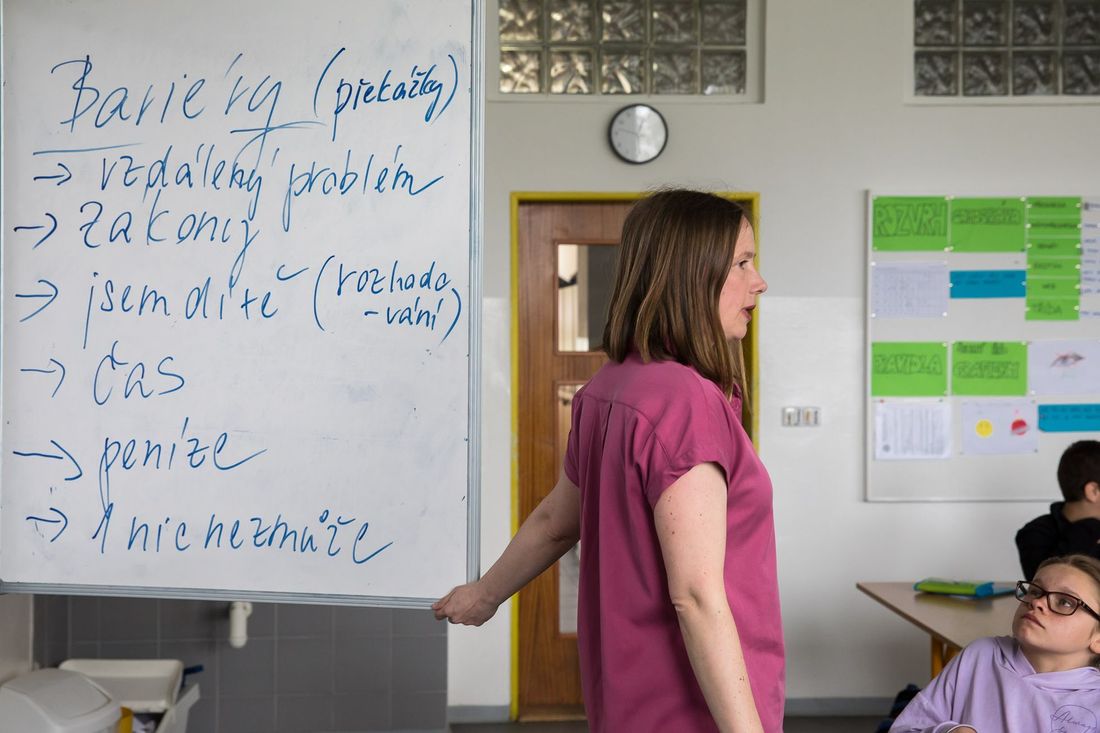 Bariéry (překážky)
→ vzdálený problém
→ zákony
→ jsem dítě (rozhodo
-vání)
→ čas
→ peníze
→ 1 nic nezmůže
ROZVRH
PRAVIDLA